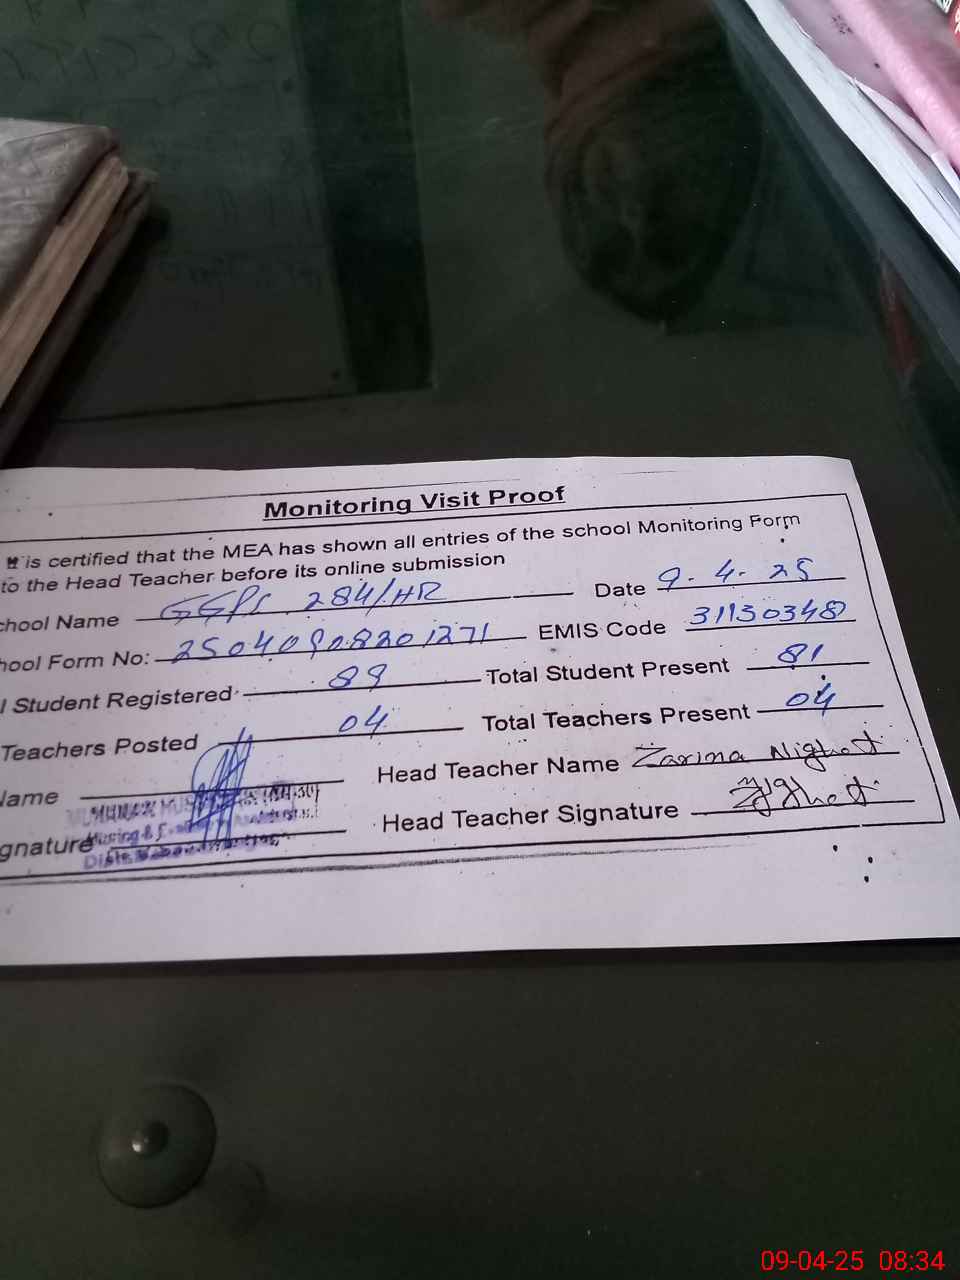 Monitoring Visit Proof
It is certified that the MEA has shown all entries of the school Monitoring Form
to the Head Teacher before its online submission
chool Name GGPS 284/HR Date 9-4-25
hool Form No: 25040908201271 EMIS Code 31130348
l Student Registered 89 Total Student Present 81
Teachers Posted 04 Total Teachers Present 04
lame Head Teacher Name Zarina Nighat
gnature Head Teacher Signature Nighat
09-04-25 08:34